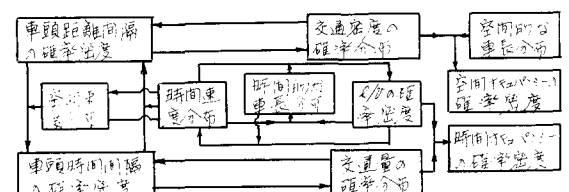 車頭距離間隔
の確率密度
交通密度の
確率分布
空間的な
車長分布
空間オキュパンシーの
確率密度
時間速
度分布
時間的な
車長分布
の確
率密度
時間オキュパンシー
の確率密度
車頭時間間隔
の確率密度
交通量の
確率分布